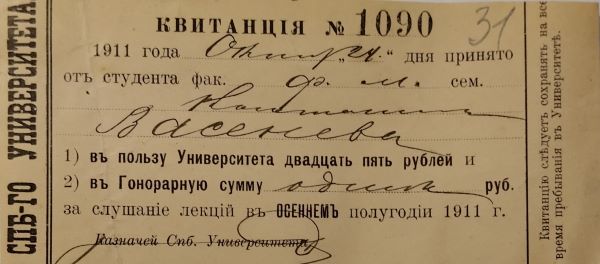 СПБ-ГО УНИВЕРСИТЕТА
КВИТАНЦІЯ № 1090
31
1911 года Окт. „24“ дня принято
отъ студента фак. Ф. м. сем.
Васенева
1) въ пользу Университета двадцать пять рублей и
2) въ Гонорарную сумму один руб.
за слушаніе лекцій въ ОСЕННЕМЪ полугодіи 1911 г.
Казначей Спб. Университета
Квитанцію слѣдуетъ сохранять на все
время пребыванія въ Университетѣ.